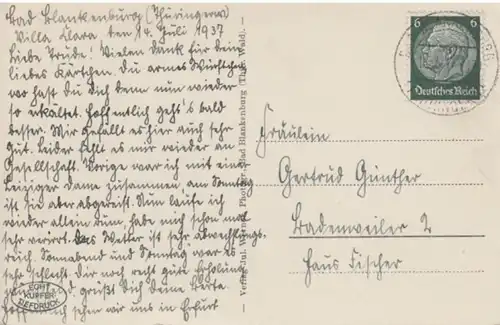 Bad Blankenburg (Thüringerw)
Villa Clara, den 14. Juli 1937
Liebe Trude! Vielen Dank für dein
liebes Kärtchen. Du armes Würstchen
wo hast du dich denn nun wieder
so erkältet. Hoffentlich geht's bald
besser. Mir gefällt es hier auch sehr
gut. Leider fehlt es mir wieder an
Gesellschaft. Vorige war ich mit einer
Leipziger Dame zusammen, am Sonntag
ist sie aber abgereist. Nun laufe ich
wieder allein rum, habe mich schon mal
sehr verirrt. Das Wetter ist sehr abwechslungs-
reich. Sonnabend und Sonntag war es
sehr schlecht. Dir noch recht gute Erholung
grüßt Dich Deine Herta
sehen wir uns in Erfurt
ECHT
KUPFER-
TIEFDRUCK
Verlag Jul. Photogr., Bad Blankenburg (Thür. Wald).
6 6
Deutsches Reich
Fräulein
Gertrud Günther
Badenweiler 2
Haus Fischer